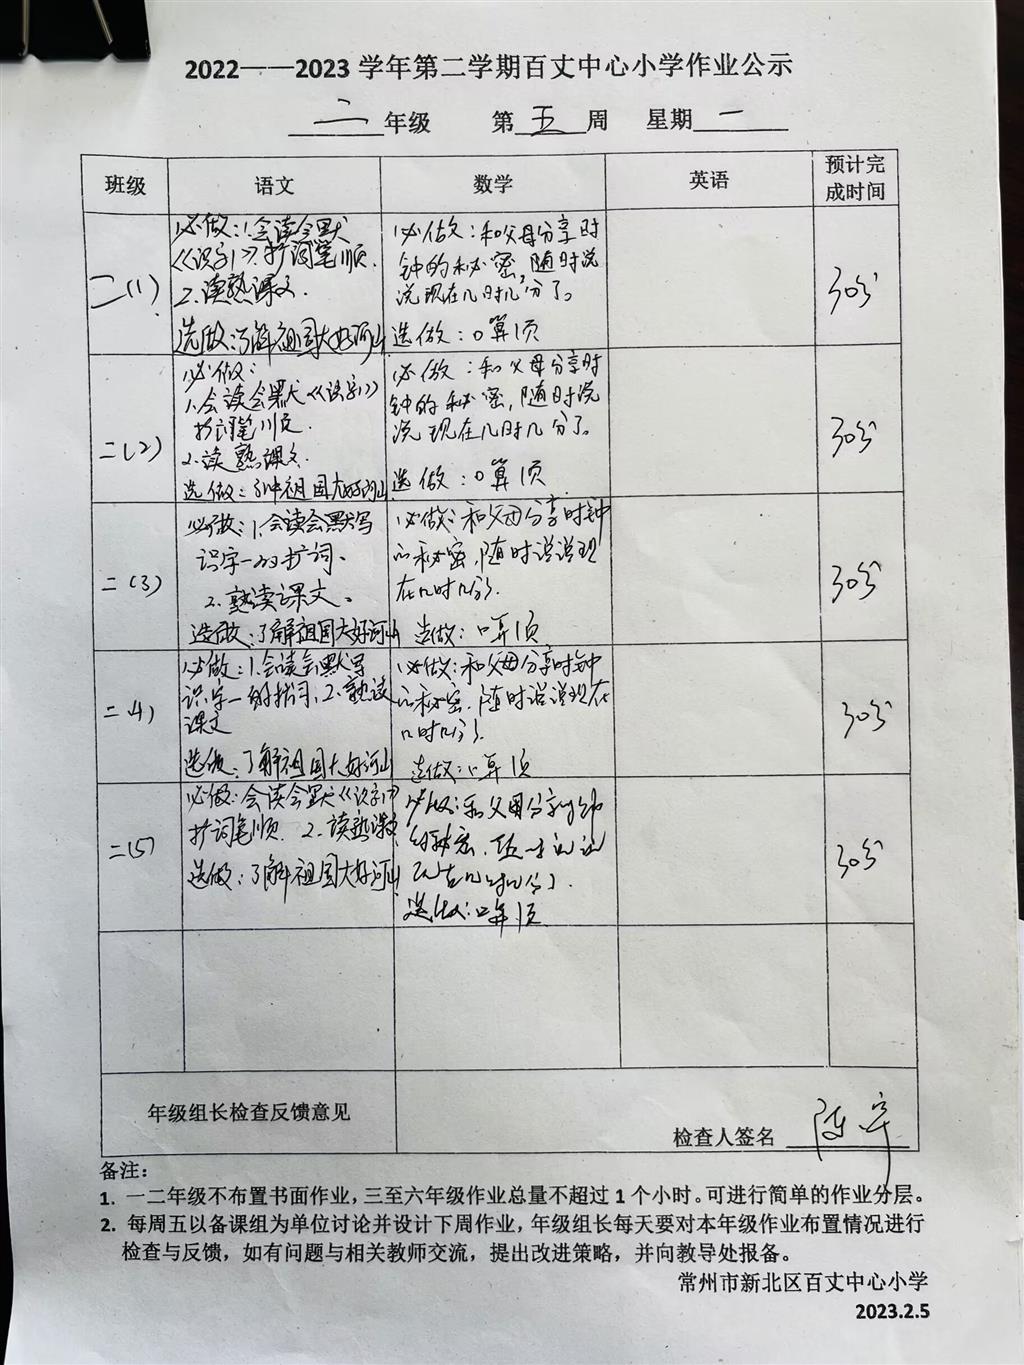 2022——2023 学年第二学期百丈中心小学作业公示
二年级 第五周 星期一
班级 语文 数学 英语 预计完
成时间
二(1)
必做:1.会读会默
《识字1》扩词笔顺.
2.读熟课文.
选做:了解祖国大好河山
必做:和父母分享时
钟的秘密,随时说
说现在几时几分了。
选做:口算1页
30分
二(2)
必做:
1.会读会默《识字1》
扩词笔顺.
2.读熟课文.
选做:了解祖国大好河山
必做:和父母分享时
钟的秘密,随时说
说现在几时几分了。
选做:口算1页.
30分
二(3)
必做:1.会读会默写
识字一的扩词、
2.熟读课文。
选做:了解祖国大好河山
必做:和父母分享时钟
的秘密,随时说说现
在几时几分.
选做:口算1页
30分
二(4)
必做:1.会读会默写
识字一的扩词,2.熟读
课文
选做:了解祖国大好河山
必做:和父母分享时钟
的秘密.随时说说现在
几时几分.
选做:口算1页
30分
二(5)
必做:会读会默《识字1》
扩词笔顺. 2.读熟课文
选做:了解祖国大好河山
必做:和父母分享时钟
的秘密,随时说说
现在几时几分了.
选做:口算1页
30分
年级组长检查反馈意见
检查人签名
备注:
1. 一二年级不布置书面作业,三至六年级作业总量不超过 1 个小时。可进行简单的作业分层。
2. 每周五以备课组为单位讨论并设计下周作业,年级组长每天要对本年级作业布置情况进行
检查与反馈,如有问题与相关教师交流,提出改进策略,并向教导处报备。
常州市新北区百丈中心小学
2023.2.5